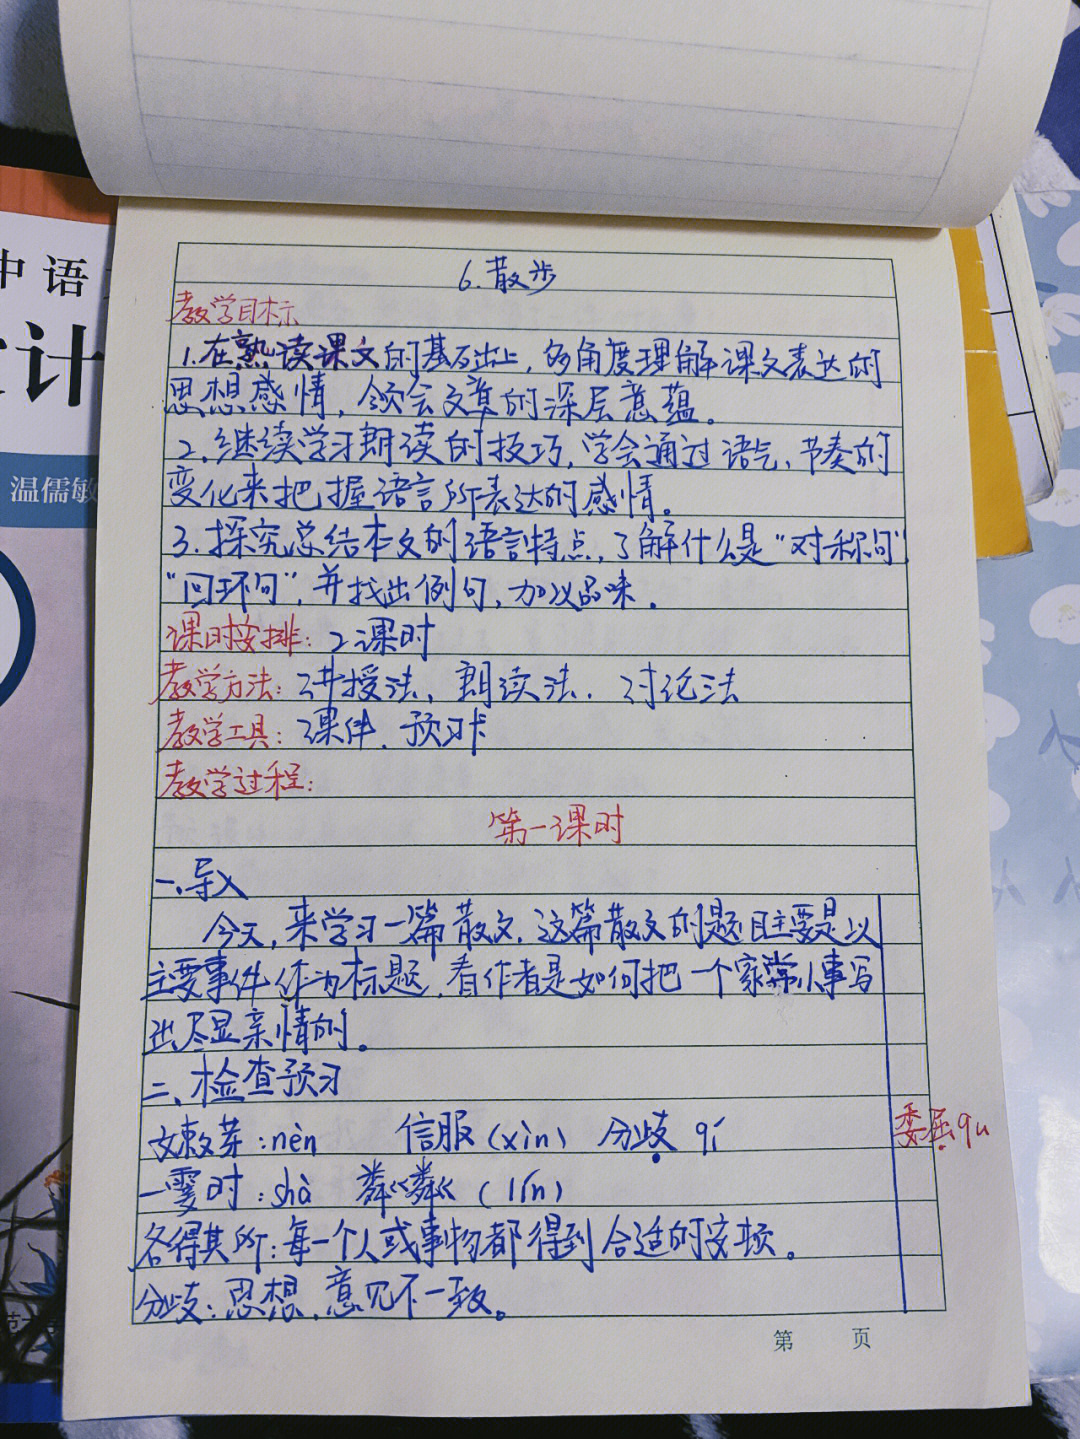 6.散步
教学目标
1.在熟读课文的基础上，多角度理解课文表达的
思想感情，领会文章的深层意蕴。
2.继续学习朗读的技巧，学会通过语气、节奏的
变化来把握语言所表达的感情。
3.探究总结本文的语言特点，了解什么是“对称句”
“回环句”，并找出例句，加以品味。
课时安排：2课时
教学方法：讲授法、朗读法、讨论法
教学工具：课件、预习卡
教学过程：
第一课时
一、导入
今天，来学习一篇散文，这篇散文的题目主要是以
主要事件作为标题，看作者是如何把一个家常小事写
出尽显亲情的。
二、检查预习
嫩芽：nèn 信服(xìn) 分歧 qí
委屈qu
一霎时：shà 粼粼(lín)
各得其所：每一个人或事物都得到合适的安顿。
分歧：思想，意见不一致。
第 页
中语
计
温儒敏